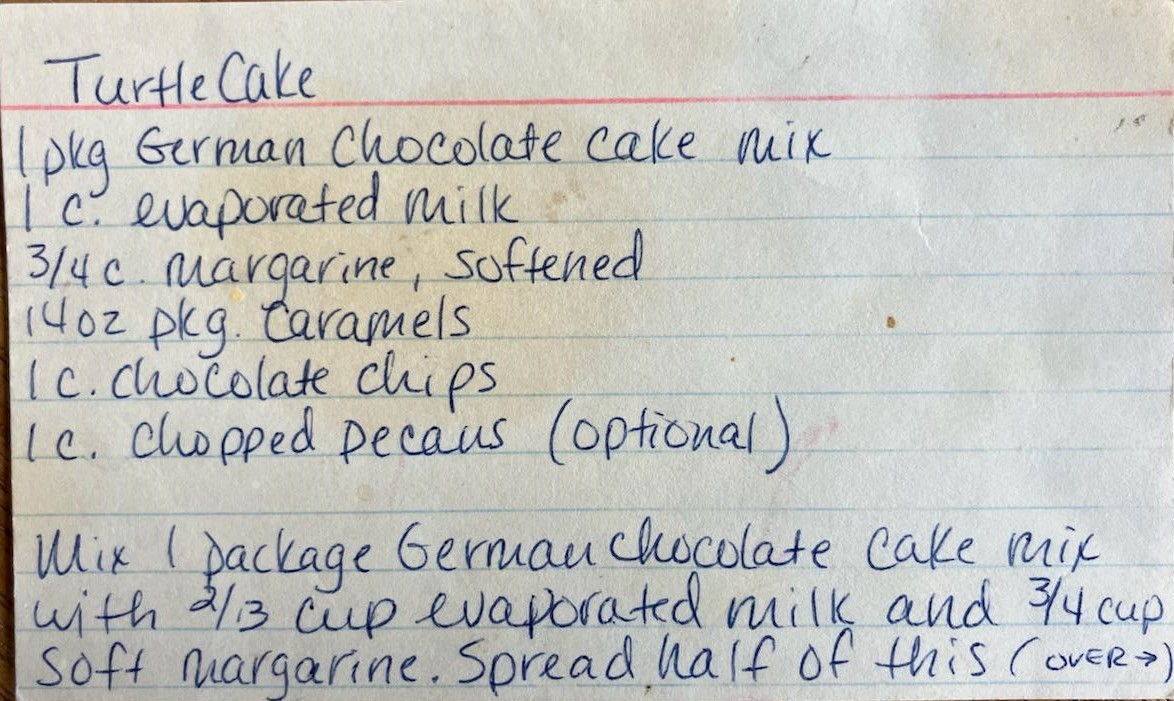 Turtle Cake
1 pkg German Chocolate cake mix
1 c. evaporated milk
3/4 c. margarine, softened
14 oz pkg. Caramels
1 c. chocolate chips
1 c. chopped pecans (optional)
Mix 1 package German chocolate cake mix
with 2/3 cup evaporated milk and 3/4 cup
soft margarine. Spread half of this (OVER→)